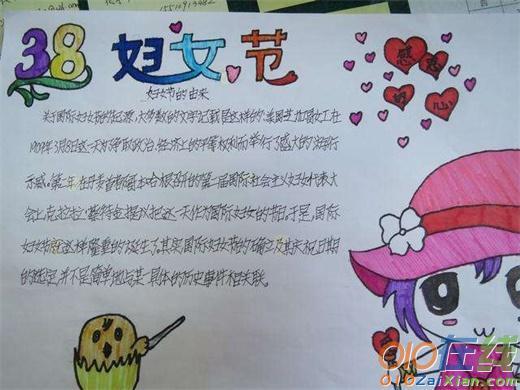 38妇女节
妇女节的由来
关于国际妇女节的起源,大多数的文字记载是这样的:美国芝加哥女工在
1909年3月8日这一天为争取政治、经济上的平等权利而举行了盛大的游行
示威。第二年,在丹麦首都哥本哈根召开的第一届国际社会主义妇女代表大
会上克拉拉·蔡特金提议把这一天作为国际妇女的节日,于是,国际
妇女节就这样隆重的诞生了,其实国际妇女节的确立及其庆祝日期
的选定,并不是简单地与某一具体的历史事件相关联。
感恩
的心
010在线
010ZaiXian.com